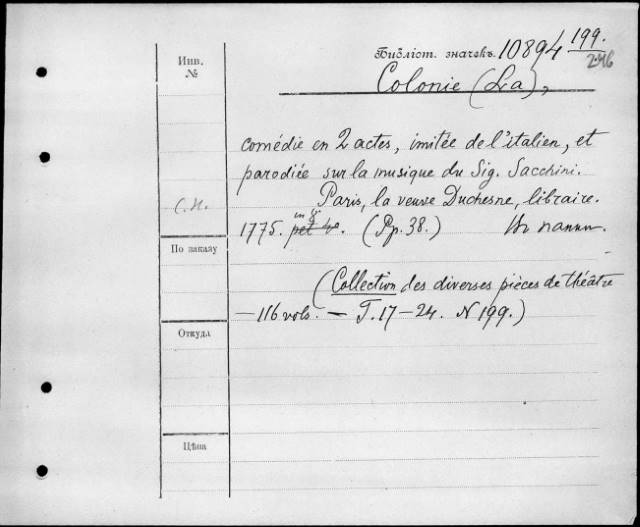 Инв.
№
Библіот. значекъ. 10894 199.
246
Colonie (La),
comédie en 2 actes, imitée de l'italien, et
parodiée sur la musique du Sig. Sacchini.
Paris, la veuve Duchesne, libraire.
С.Н.
in 8°
1775. pet 4°. (Pp. 38.) Въ папкѣ.
По заказу
(Collection des diverses pièces de théâtre
— 116 vols. — T. 17 — 24. N 199.)
Откуда
Цѣна